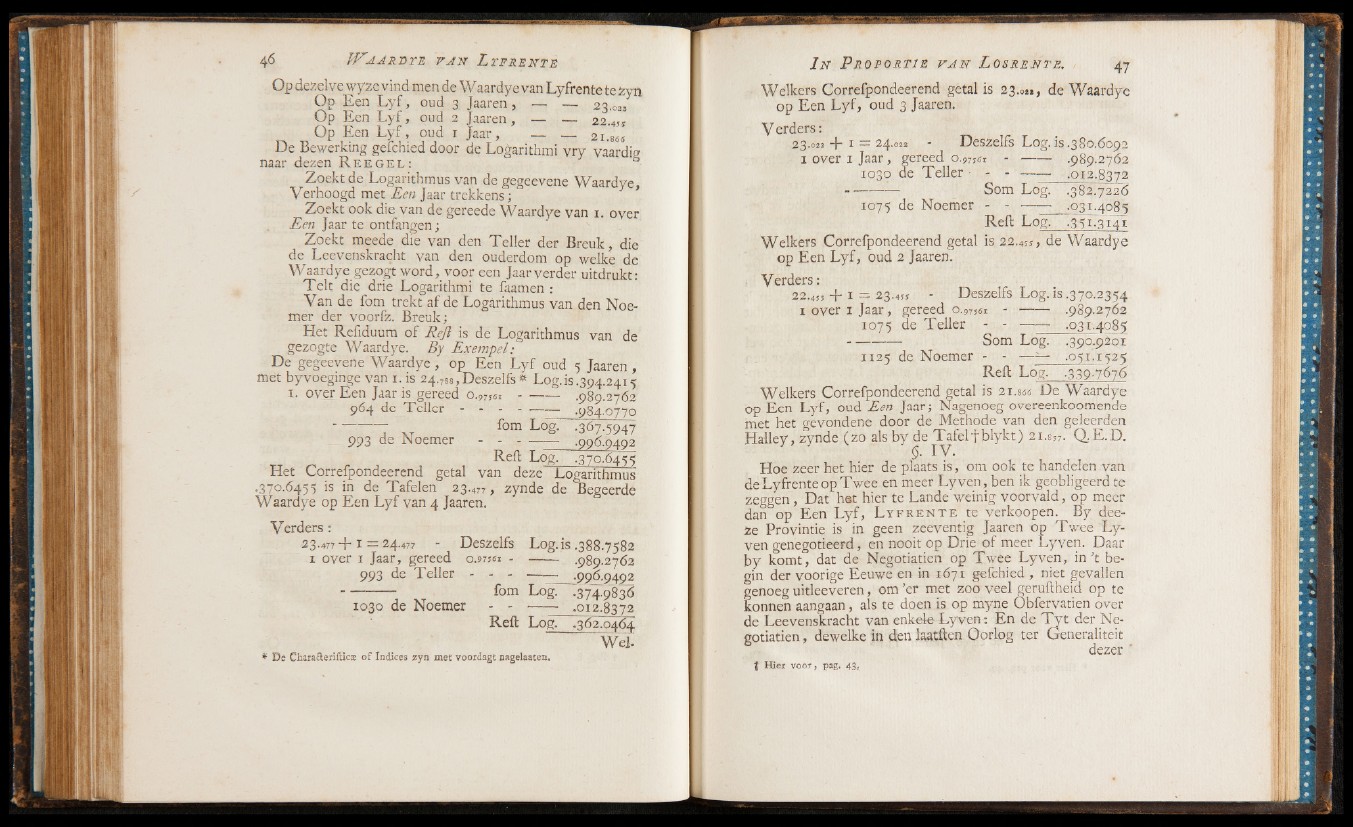 46 WAARDYE VAN LYFRENTE
Op dezelve wyze vind men de Waardye van Lyfrente te zyn
Op Een Lyf, oud 3 Jaaren, — — 23.022
Op Een Lyf, oud 2 Jaaren, — — 22.455
Op Een Lyf, oud 1 Jaar, — — 21.866
De Bewerking geſchied door de Logarithmi vry vaardig
naar dezen REEGEL:
Zoekt de Logarithmus van de gegeevene Waardye,
Verhoogd met Een Jaar trekkens;
Zoekt ook die van de gereede Waardye van 1. over
Een Jaar te ontfangen;
Zoekt meede die van den Teller der Breuk, die
de Leevenskracht van den ouderdom op welke de
Waardye gezogt word, voor een Jaar verder uitdrukt:
Telt die drie Logarithmi te ſaamen:
Van de ſom trekt af de Logarithmus van den Noe-
mer der voorſz. Breuk;
Het Reſiduum of Reſt is de Logarithmus van de
gezogte Waardye. By Exempel:
De gegeevene Waardye, op Een Lyf oud 5 Jaaren,
met byvoeginge van 1. is 24.788, Deszelfs * Log. is .394.2415
1. over Een Jaar is gereed 0.97561 - —— .989.2762
964 de Teller - - - - —— .984.0770
- ——— ſom Log. .367.5947
993 de Noemer - - - —— .996.9492
Reſt Log. .370.6455
Het Correſpondeerend getal van deze Logarithmus
.370.6455 is in de Tafelen 23.477, zynde de Begeerde
Waardye op Een Lyf van 4 Jaaren.
Verders:
23.477 + 1 = 24.477 - Deszelfs Log. is .388.7582
1 over 1 Jaar, gereed 0.97561 - —— .989.2762
993 de Teller - - - —— .996.9492
- ——— ſom Log. .374.9836
1030 de Noemer - - —— .012.8372
Reſt Log. .362.0464
Wel-
* De Characteriſticæ of Indices zyn met voordagt nagelaaten.
IN PROPORTIE VAN LOSRENTE. 47
Welkers Correſpondeerend getal is 23.022, de Waardye
op Een Lyf, oud 3 Jaaren.
Verders:
23.022 + 1 = 24.022 - Deszelfs Log. is .380.6092
1 over 1 Jaar, gereed 0.97561 - —— .989.2762
1030 de Teller - - —— .012.8372
- ——— Som Log. .382.7226
1075 de Noemer - - —— .031.4085
Reſt Log. .351.3141
Welkers Correſpondeerend getal is 22.455, de Waardye
op Een Lyf, oud 2 Jaaren.
Verders:
22.455 + 1 = 23.455 - Deszelfs Log. is .370.2354
1 over 1 Jaar, gereed 0.97561 - —— .989.2762
1075 de Teller - - —— .031.4085
- ——— Som Log. .390.9201
1125 de Noemer - - —— .051.1525
Reſt Log. .339.7676
Welkers Correſpondeerend getal is 21.866 De Waardye
op Een Lyf, oud Een Jaar; Nagenoeg overeenkoomende
met het gevondene door de Methode van den geleerden
Halley, zynde (zo als by de Tafel † blykt) 21.857. Q. E. D.
§. IV.
Hoe zeer het hier de plaats is, om ook te handelen van
de Lyfrente op Twee en meer Lyven, ben ik geobligeerd te
zeggen, Dat het hier te Lande weinig voorvald, op meer
dan op Een Lyf, LYFRENTE te verkoopen. By dee-
ze Provintie is in geen zeeventig Jaaren op Twee Ly-
ven genegotieerd, en nooit op Drie of meer Lyven. Daar
by komt, dat de Negotiatien op Twee Lyven, in 't be-
gin der voorige Eeuwe en in 1671 geſchied, niet gevallen
genoeg uitleeveren, om 'er met zoo veel geruſtheid op te
konnen aangaan, als te doen is op myne Obſervatien over
de Leevenskracht van enkele Lyven: En de Tyt der Ne-
gotiatien, dewelke in den laatſten Oorlog ter Generaliteit
dezer
† Hier voor, pag. 43.